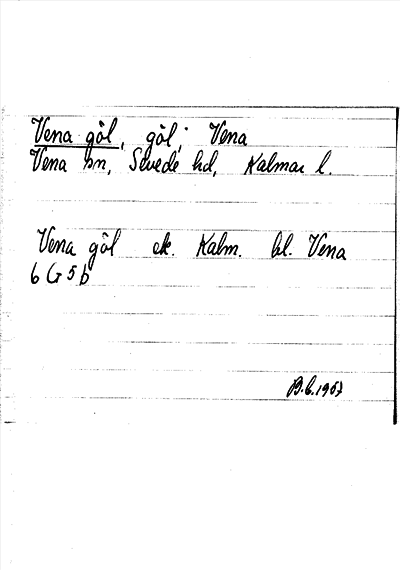 Vena göl, göl; Vena
Vena sn, Sevede hd, Kalmar l.
Vena göl ek. Kalm. bl. Vena
6 G 5 b
B.L. 1967